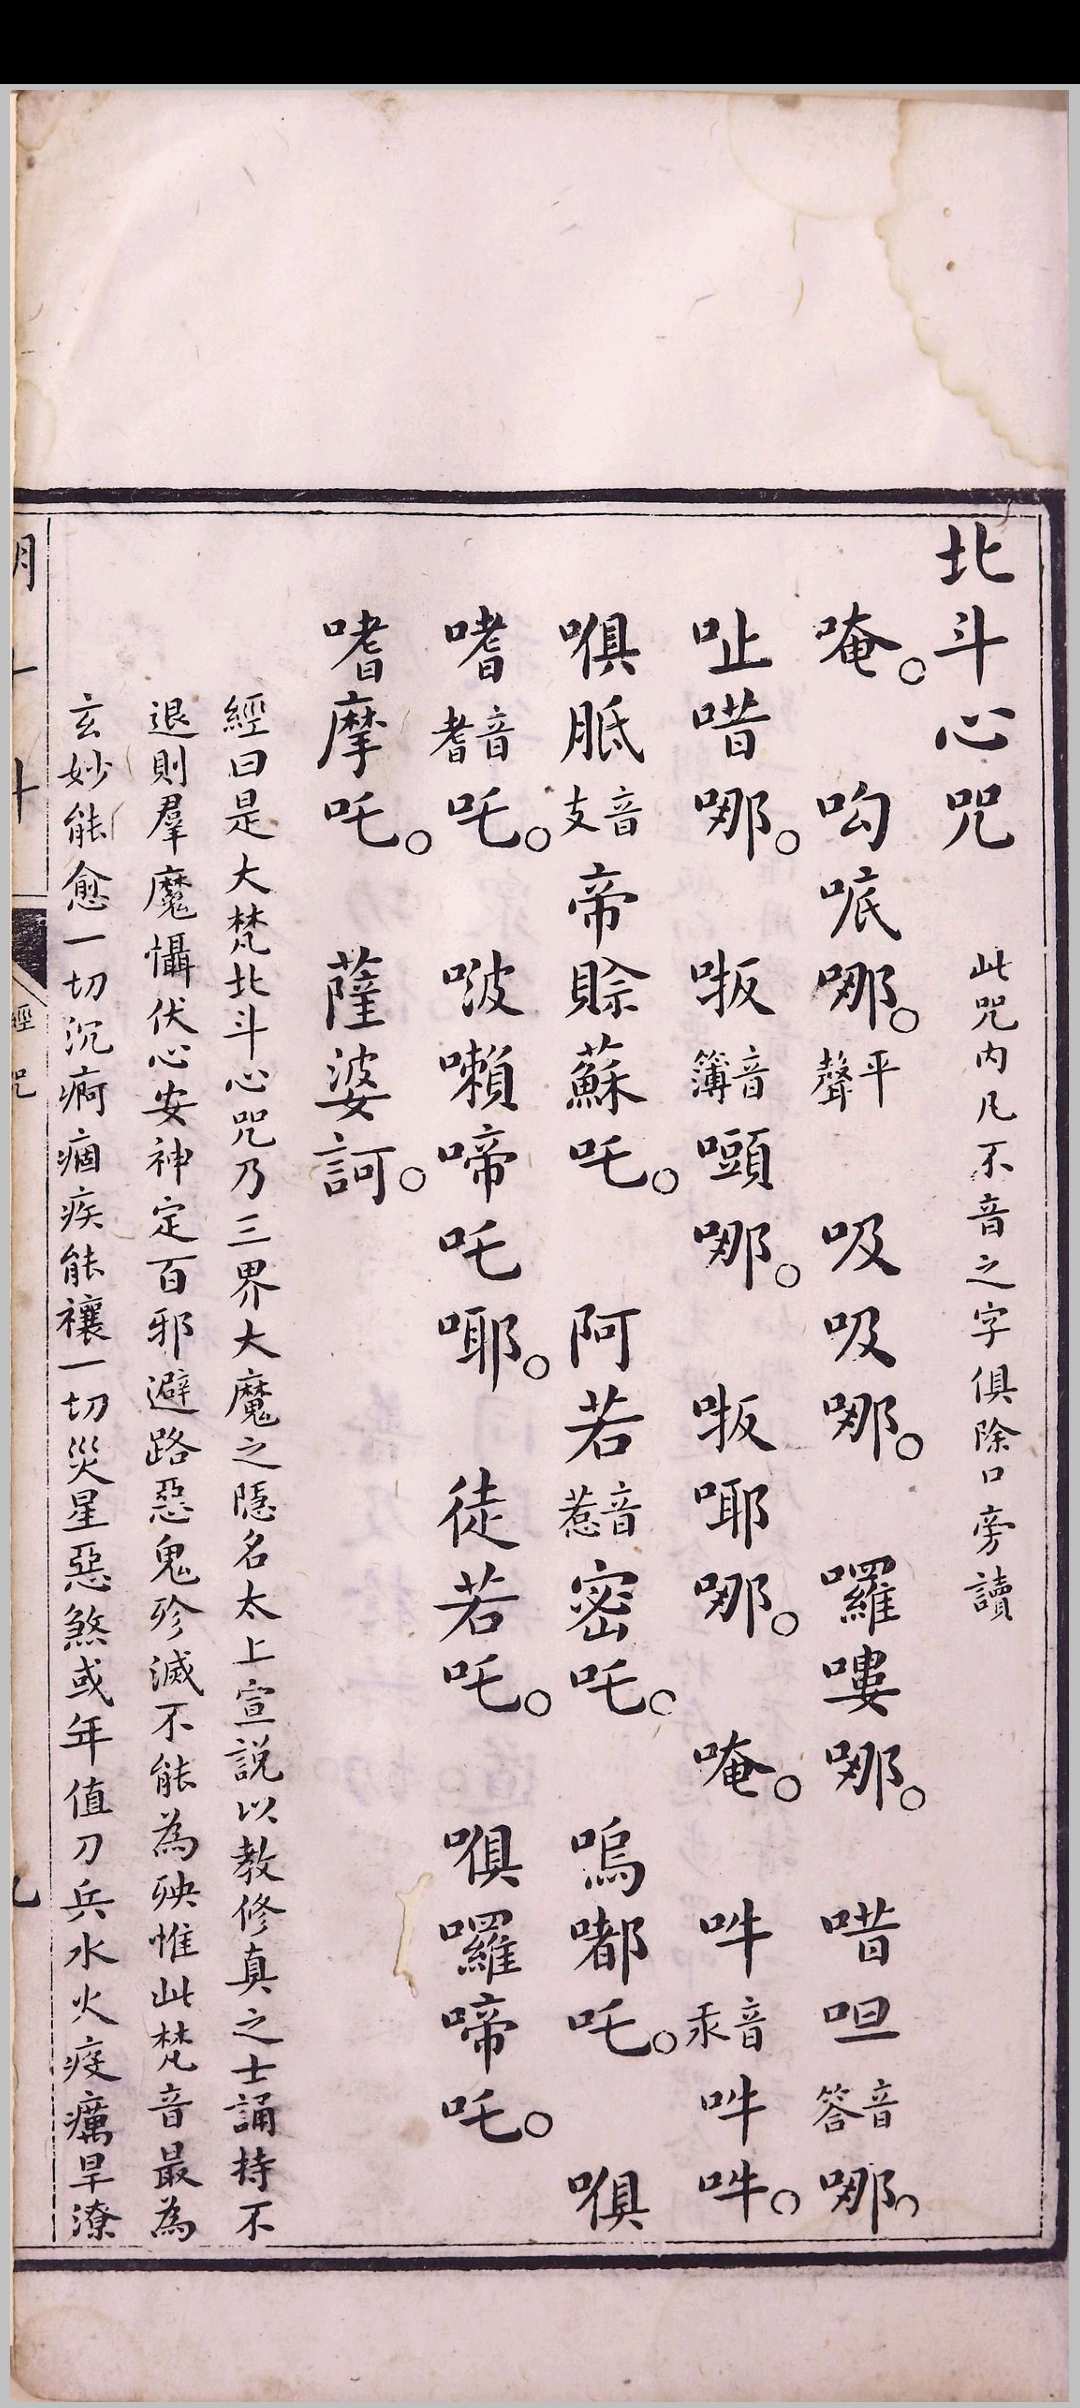 北斗心咒 此咒內凡不音之字俱除口旁讀
唵。㗇哌哪。平聲 吸吸哪。囉嘍哪。唶呾音答哪。
呲唶哪。哌音簿㖡哪。哌哪哪。唵。吽音汞吽吽。
唄胝音支帝賒蘇吒。阿若音惹密吒。嗚嘟吒。唄
嗜音耆吒。啵嚹啼吒哪。徒若吒。唄囉啼吒。
嗜摩吒。薩婆訶。
經曰是大梵北斗心咒乃三界大魔之隱名太上宣說以教修真之士誦持不
退則羣魔懾伏心安神定百邪避路惡鬼殄滅不能為殃惟此梵音最為
玄妙能愈一切沉痾痼疾能禳一切災星惡煞或年值刀兵水火疫癘旱潦
經咒